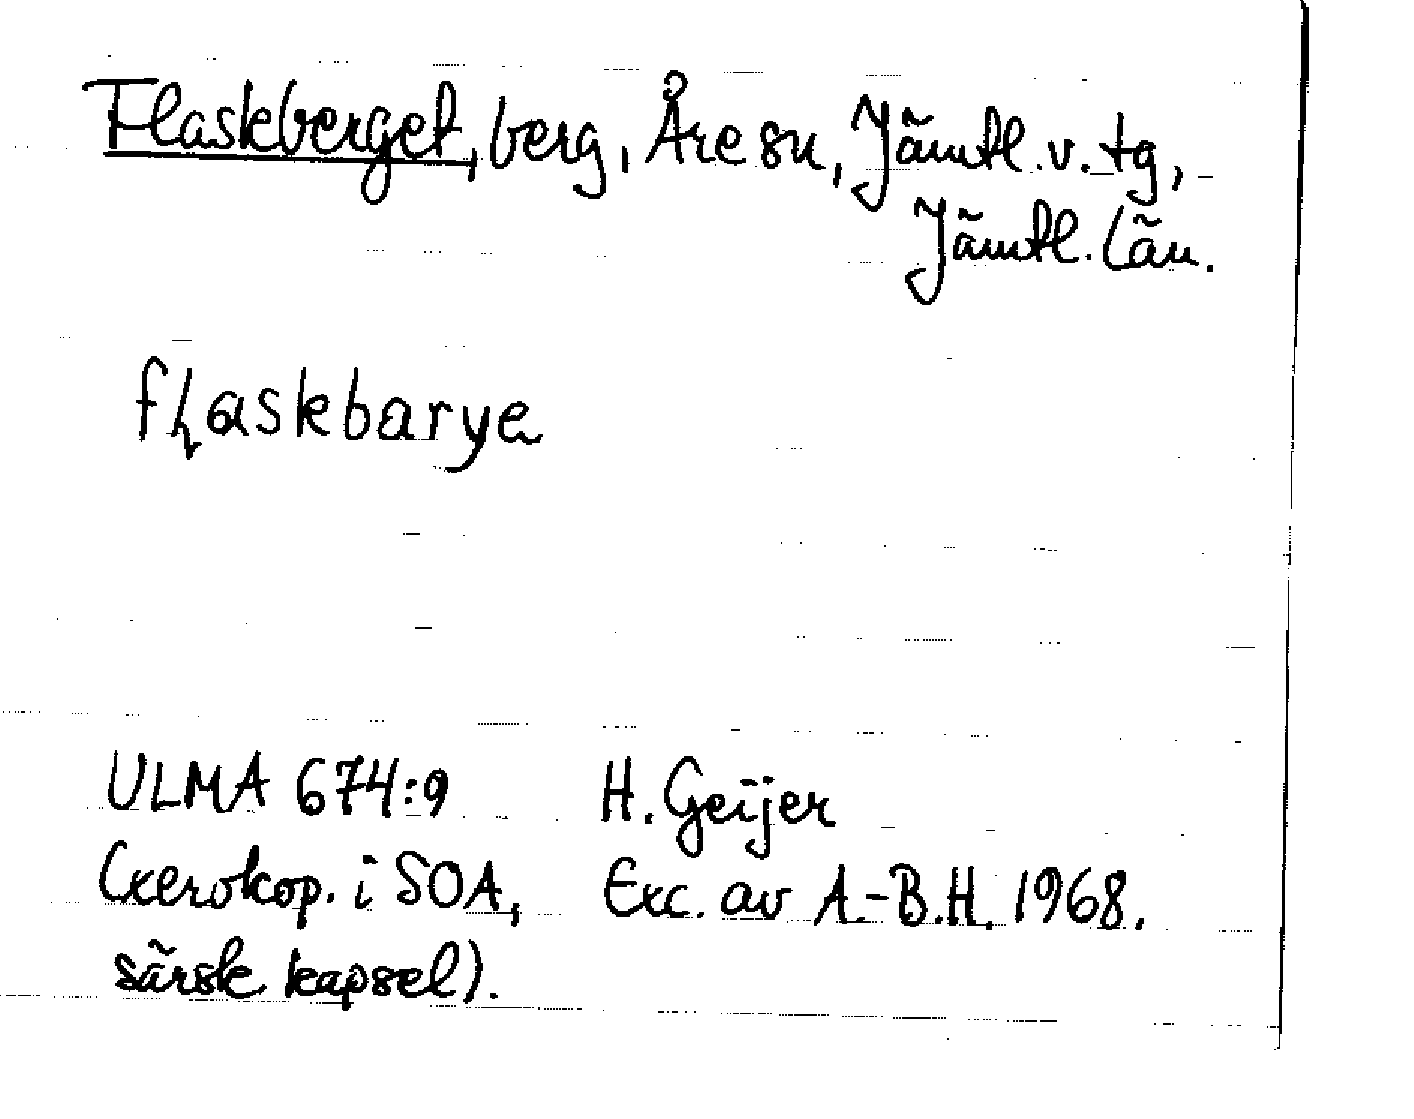 Flaskberget, berg, Åre sn, Jämtl. v. tg,
Jämtl. län.
flaskbarye
ULMA 674:9 H. Geijer
(xerokop. i SOA, Exc. av A.-B.H. 1968.
särsk. kapsel).